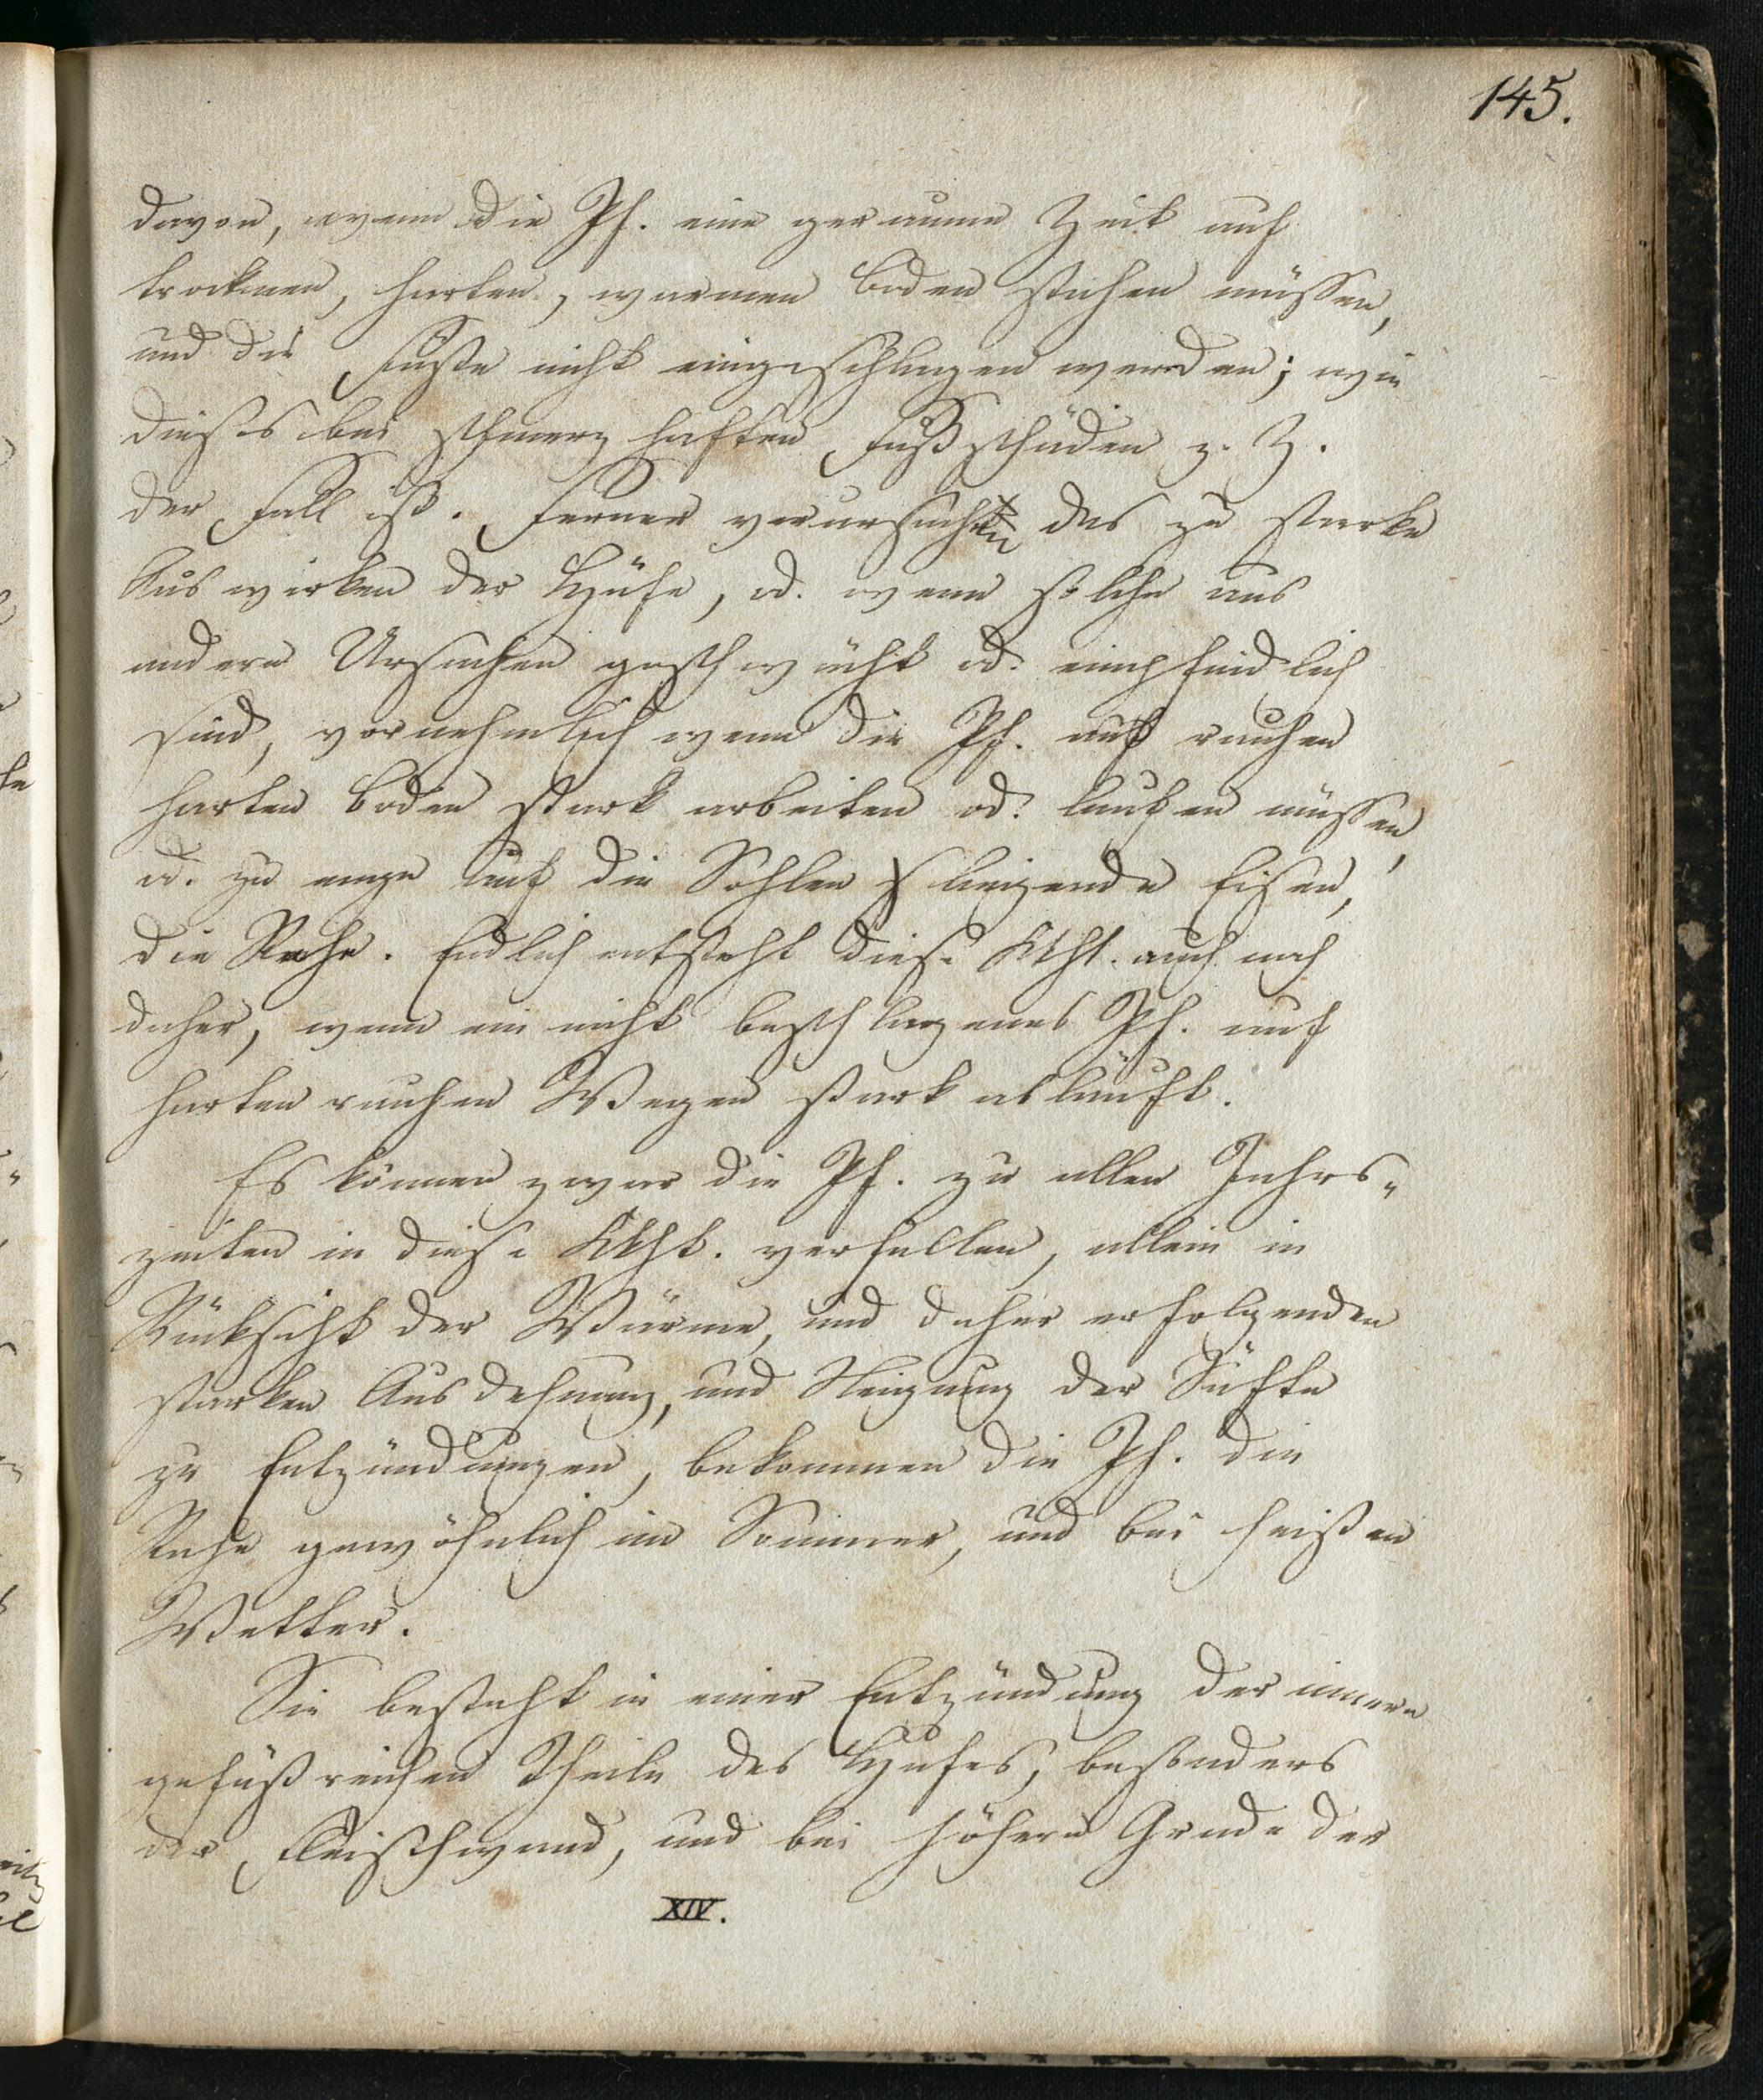 145.
davon, wenn die Pf. eine geraume Zeit auf
trocknen, harten, warmen Boden stehen müssen,
und die Füsse nicht eingeschlagen werden; wie
dieses bei schmerzhaften Fußschäden z. Z.
der Fall ist. Ferner verursacht das zu starke
Auswirken der Hüfe, od. wenn solche aus
andern Ursachen geschwächt od. empfindlich
sind, vornehmlich wenn die Pf. auf rauhen
harten Boden stark arbeiten od. laufen müssen,
od. zu enge auf die Sohlen liegende Eisen,
die Rehe. Endlich entsteht diese Kkht. auch noch
daher, wenn ein nicht beschlagenes Pf. auf
harten rauhen Wegen stark abläuft.
Es können zwar die Pf. zu allen Jahrs-
zeiten in diese Kkht. verfallen, allein in
Rücksicht der Wärme, und daher erfolgenden
starken Ausdehnung, und Neigung der Säfte
zu Entzündungen, bekommen die Pf. die
Rehe gewöhnlich im Sommer, und bei heißen
Wetter.
Sie besteht in einer Entzündung der innern
gefäßreichen Theile des Hufes, besonders
der Fleischwand, und bei höhern Grade der
XIV.